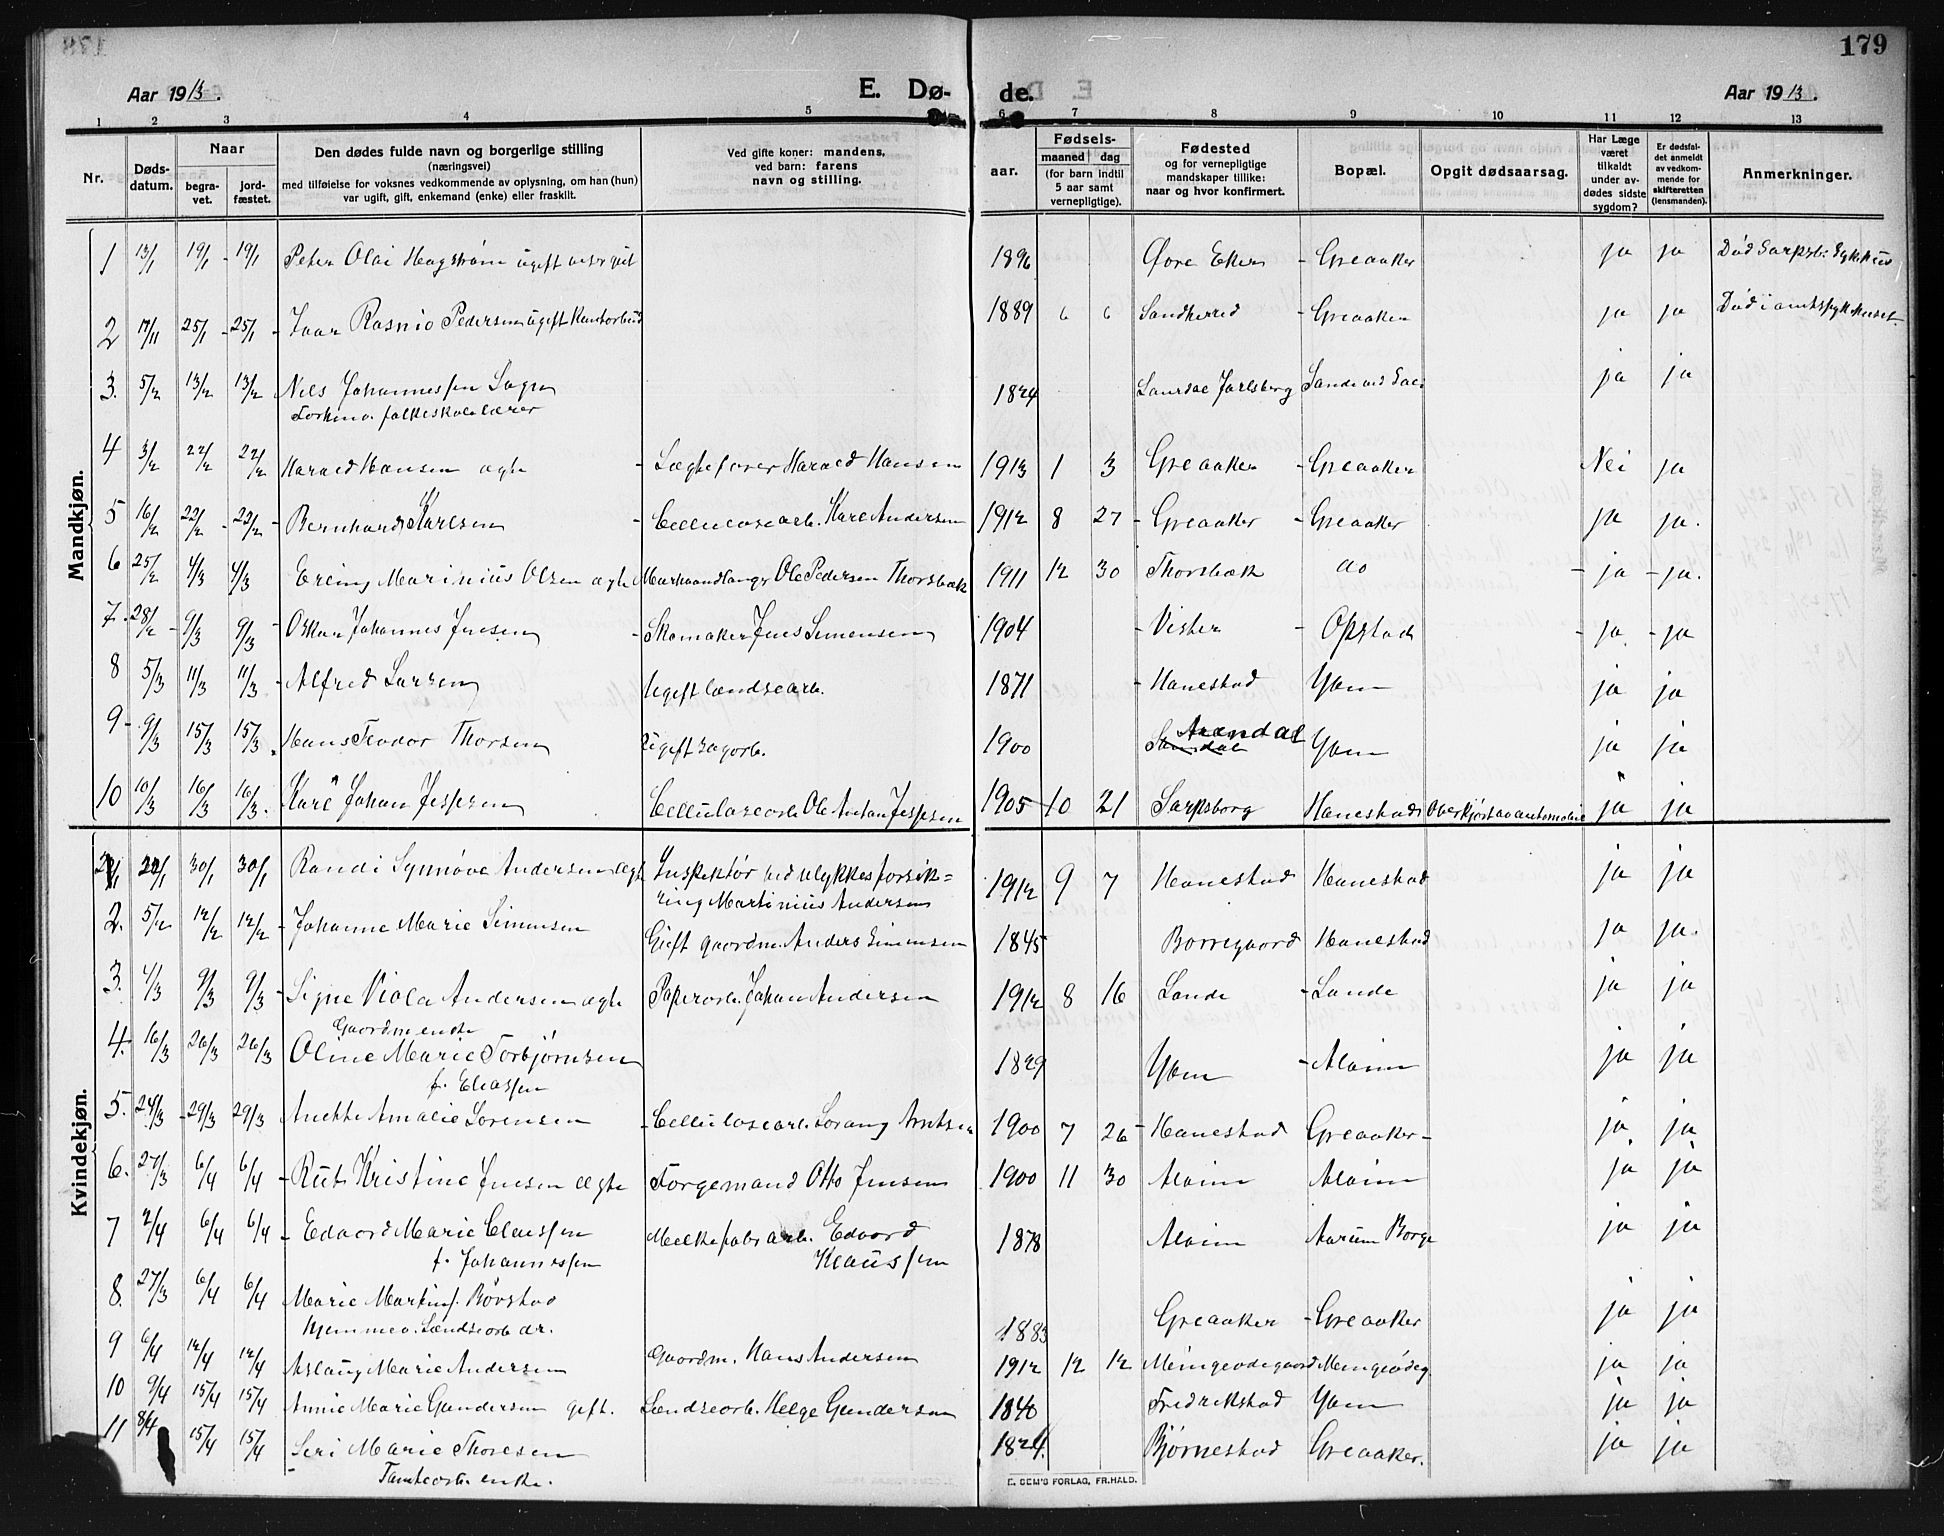 179
Aar 1913. E. Dø- de. Aar 1913.
1 2 3 4 5 6 7 8 9 10 11 12 13
Nr. Dødsdatum. Naar begravet. jordfæstet. Den dødes fulde navn og borgerlige stilling (næringsvei) med tilføielse for voksnes vedkommende av oplysning, om han (hun) var ugift, gift, enkemand (enke) eller fraskilt. Ved gifte koner: mandens, ved barn: farens navn og stilling. Fødsels- aar. maaned dag (for barn indtil 5 aar samt vernepligtige). Fødested og for vernepligtige mandskaper tillike: naar og hvor konfirmert. Bopæl. Opgit dødsaarsag. Har Læge været tilkaldt under avdødes sidste sygdom? Er dødsfaldet anmeldt av vedkommende for skifteretten (lensmanden). Anmerkninger.
Mandkjøn.
1 13/1 19/1 - 19/1 Peter Olai Hagstrøm ugift 1896 Øvre Eker - Greaaker ja ja Død Sarpsb. Sykehus
2 25/1 - 25/1 - Ivar Pedersen ugift 1889 6 6 Sandherred - Greaaker ja ja Død i amtssykehuset.
3. 5/2 13/2 13/2 Nils Johannessen 1824 Jarlsberg ja ja
folkeskolelærer
4 3/2 22/2 22/2 Harald Hansen ægte - Harald Hansen 1913 1 3 Greaaker - Greaaker Nei ja
5 16/2 22/2 - 22/2 - Bernhard Karlsen - Cellulosearb. Karl Andersen 1912 8 27 - Greaaker - Greaaker ja ja.
6 25/2 4/3 4/3 Erling Marinius Olsen ægte Ole Pedersen Thorsbæk 1911 12 30 Thorsbæk do - ja - ja.
7. 28/2 - 9/3 9/3 - Oskar Johannes Jensen - Skomaker Jens Simensen 1904 - Vister - Opstad - ja. - ja
8 5/3 11/3 11/3 - Alfred Larsen Ugift landsearb. 1871 - Hanestad Yven ja ja
9 - 9/3 15/3 15/3. Hans Teodor Thorsen Ugift sagarb. 1900 Arendal Yven ja ja
10 10/3 16/3 16/3. Karl Johan Jespsen Cellulosearb Ole Anton Jespsen 1905 10 21 Sarpsborg Hanestad Overkjørt av automobil ja ja
Kvindekjøn.
30/1 30/1 - Randi Synnøve Andersen ægte Inspektør ved ulykkesforsik=
ring Martinius Andersen 1912 9 7 Hanestad Hanestad ja ja
2. 5/2 12/2 12/2 - Johanne Marie Simensen Gift gaardm. Anders Simensen 1845 Borregaard Hanestad ja ja.
3. 4/3 9/3 9/3 - Signe Viola Andersen ægte Papirarb. Johan Andersen 1912 8 16 Lande - Lande ja ja
Gaardm enke
4. 16/3 26/3 26/3 Oline Marie Torbjørnsen 1829 Yven - Alvim ja ja
f. Eliassen
5. 24/3 - 29/3 29/3 Anette Amalie Sørensen - Cellulosearb. Lorang Arntsen 1900 7 26 - Hanestad Greaaker - ja ja
6. 27/3 6/4 6/4 - Rut Kristine Jensen ægte Forgemand Otto Jensen 1900 11 30 Alvim Alvim ja ja
7 2/4 6/4 6/4 - Edvard Marie Claussen Melkefabr arb. Edvard 1878 Alvim Aarum Borge ja ja
f. Johannessen Klaussen
8. 27/3 6/4 6/4 Marie Martin f. Bøvstad 1883 Greaaker - Greaaker ja ja
Hjemmev. Landsearb dr.
9 6/4 12/4 12/4 Aslaug Marie Andersen Gaardm. Hans Andersen 1912 12 12 ja ja
10 9/4 15/4 15/4 Annie Marie Gundersen gift. Landsearb. Helge Gundersen 1840 Fredrikstad Yven ja ja
11 8/4 15/4 15/4 - Seri Marie Thoresen 1824. Bjørnestad Greaaker. ja ja
Tomtearb. enke.
E. SEM'S FORLAG, FR.HALD.